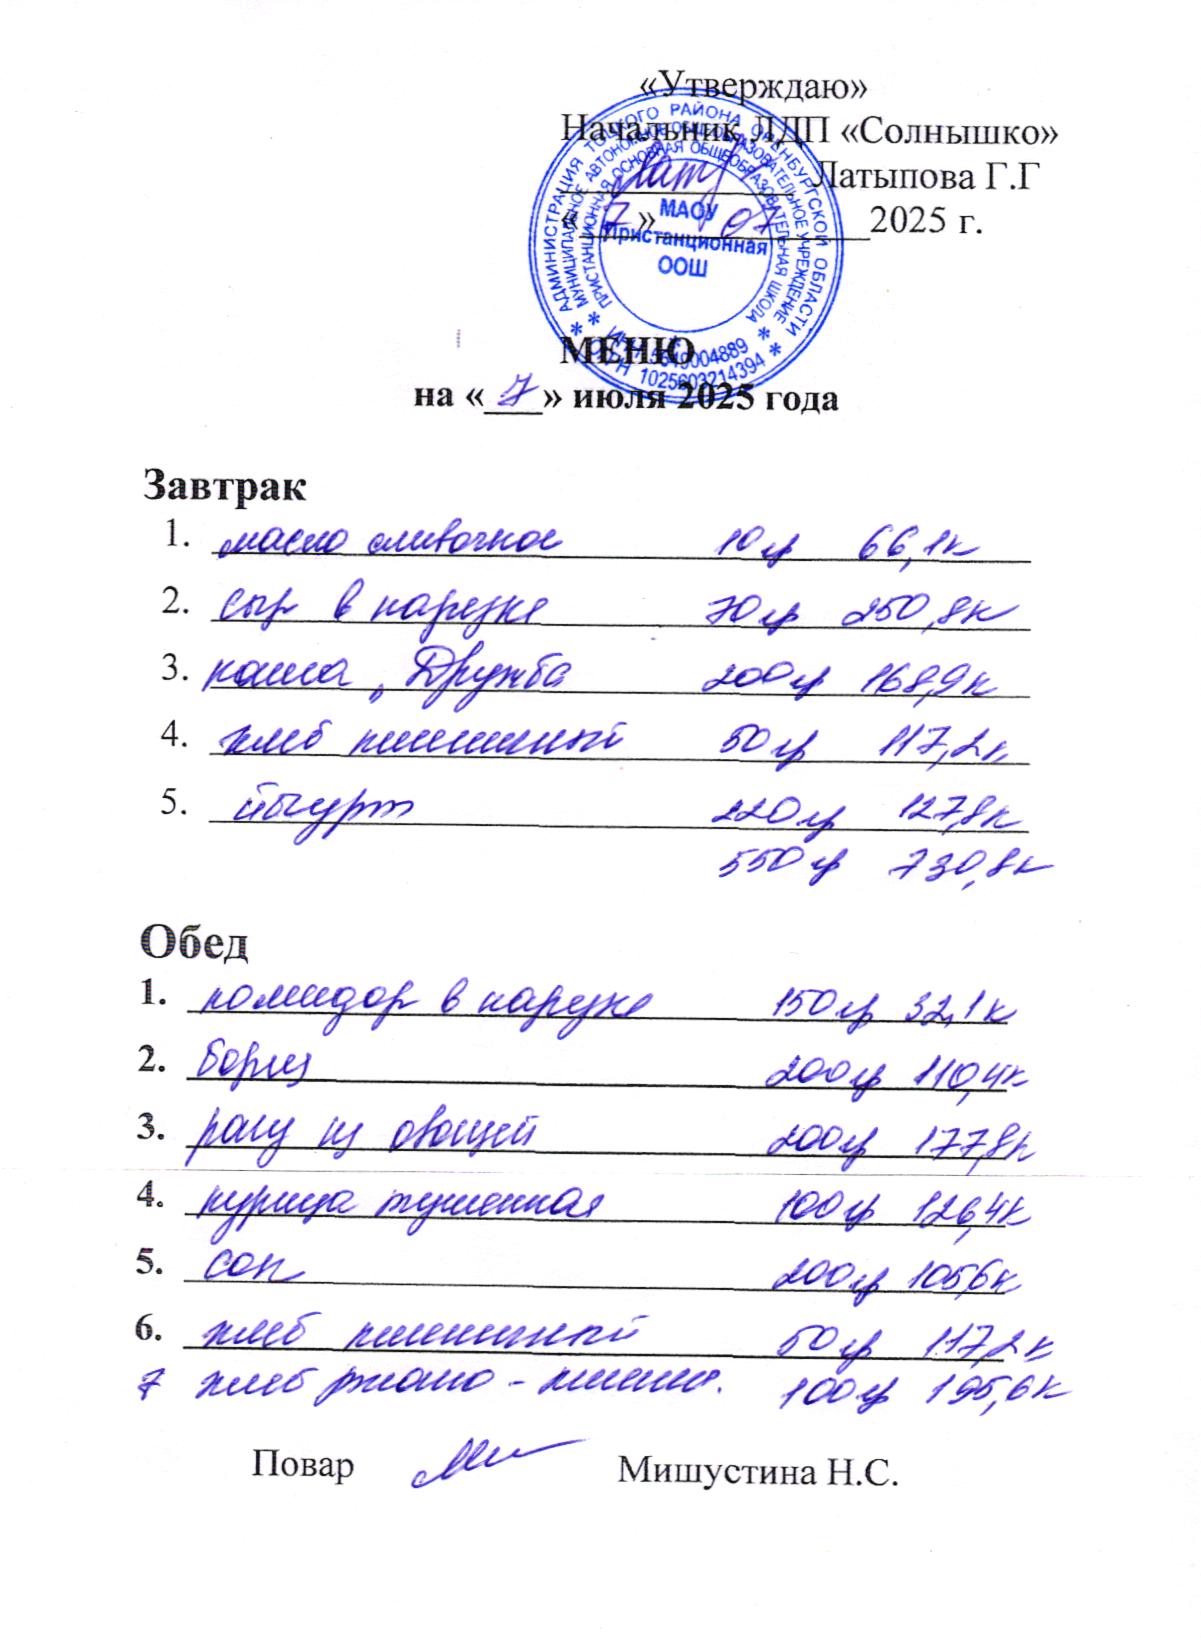 «Утверждаю»
Начальник ЛДП «Солнышко»
Латыпова Г.Г
«7» 07 2025 г.
АДМИНИСТРАЦИЯ ТОЦКОГО РАЙОНА ОРЕНБУРГСКОЙ ОБЛАСТИ
МУНИЦИПАЛЬНОЕ АВТОНОМНОЕ ОБЩЕОБРАЗОВАТЕЛЬНОЕ УЧРЕЖДЕНИЕ
ПРИСТАНЦИОННАЯ ОСНОВНАЯ ОБЩЕОБРАЗОВАТЕЛЬНАЯ ШКОЛА
МАОУ
Пристанционная
ООШ
ОГРН 1025603214394
МЕНЮ
на «7» июля 2025 года
Завтрак
1. масло сливочное 10 гр 66,1к
2. сыр в нарезке 70 гр 250,8к
3. каша „Дружба 200 гр 168,9к
4. хлеб пшеничный 50 гр 117,2к
5. йогурт 220 гр 127,8к
550 гр 730,8к
Обед
1. помидор в нарезке 150 гр 32,1к
2. борщ 200 гр 110,4к
3. рагу из овощей 200 гр 177,8к
4. курица тушенная 100 гр 126,4к
5. сок 200 гр 105,6к
6. хлеб пшеничный 50 гр 117,2к
7 хлеб ржано - пшенич. 100 гр 195,6к
Повар Мишустина Н.С.